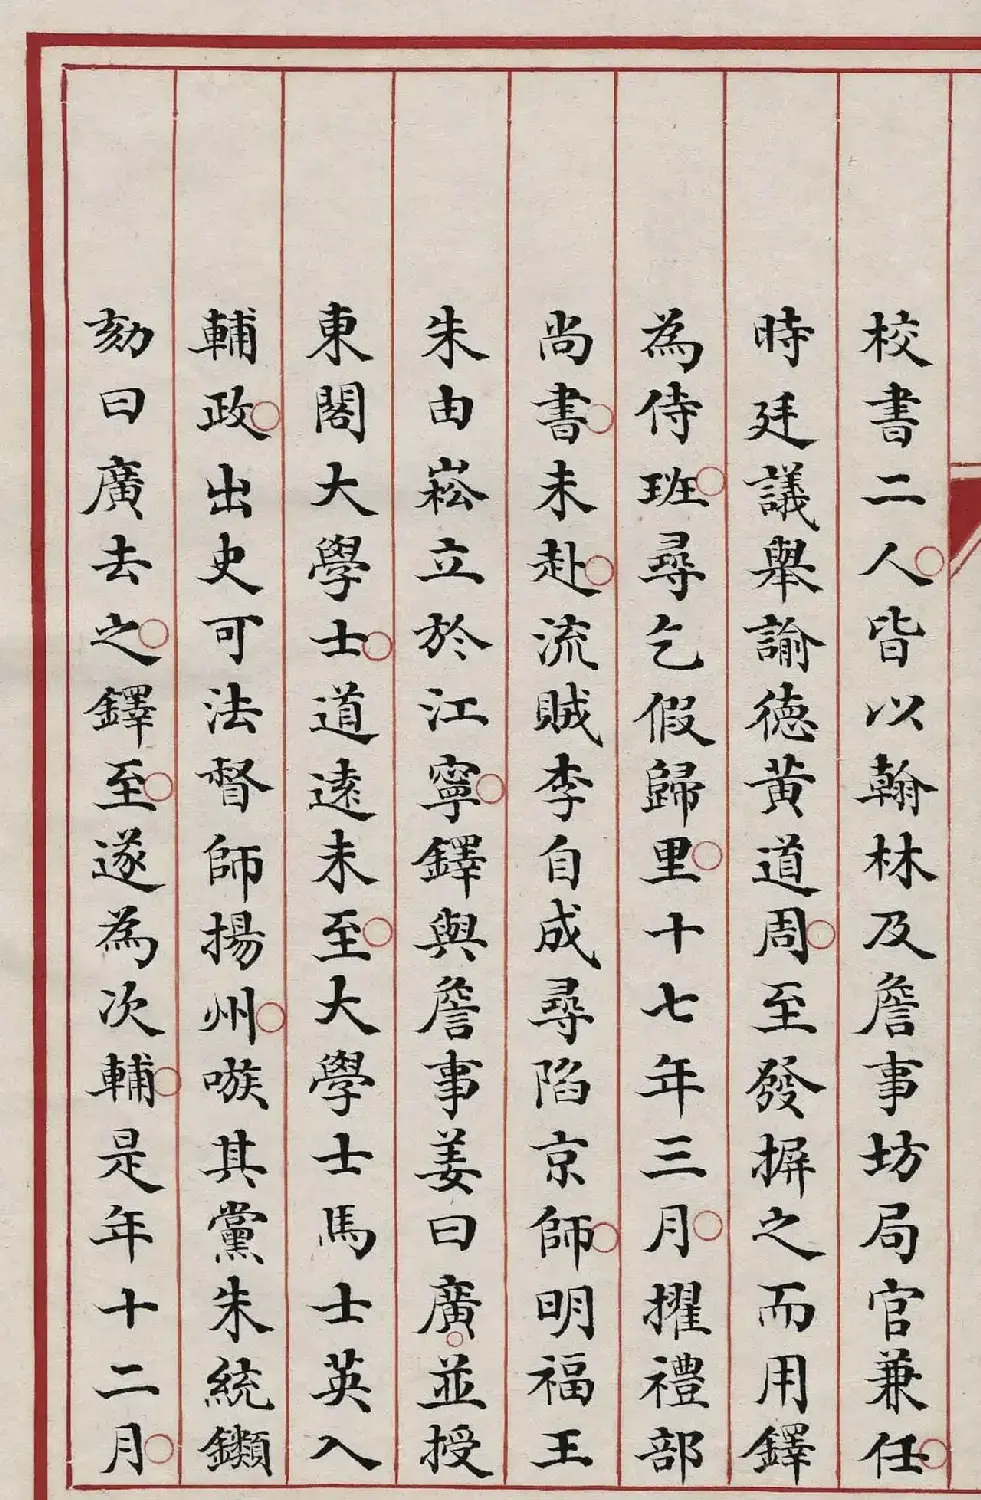 校書二人皆以翰林及詹事坊局官兼任
時廷議舉諭德黃道周至發摒之而用鐸
為侍班尋乞假歸里十七年三月擢禮部
尚書未赴流賊李自成尋陷京師明福王
朱由崧立於江寧鐸與詹事姜曰廣並授
東閣大學士道遠未至大學士馬士英入
輔政出史可法督師揚州嗾其黨朱統𨰃
劾曰廣去之鐸至遂為次輔是年十二月